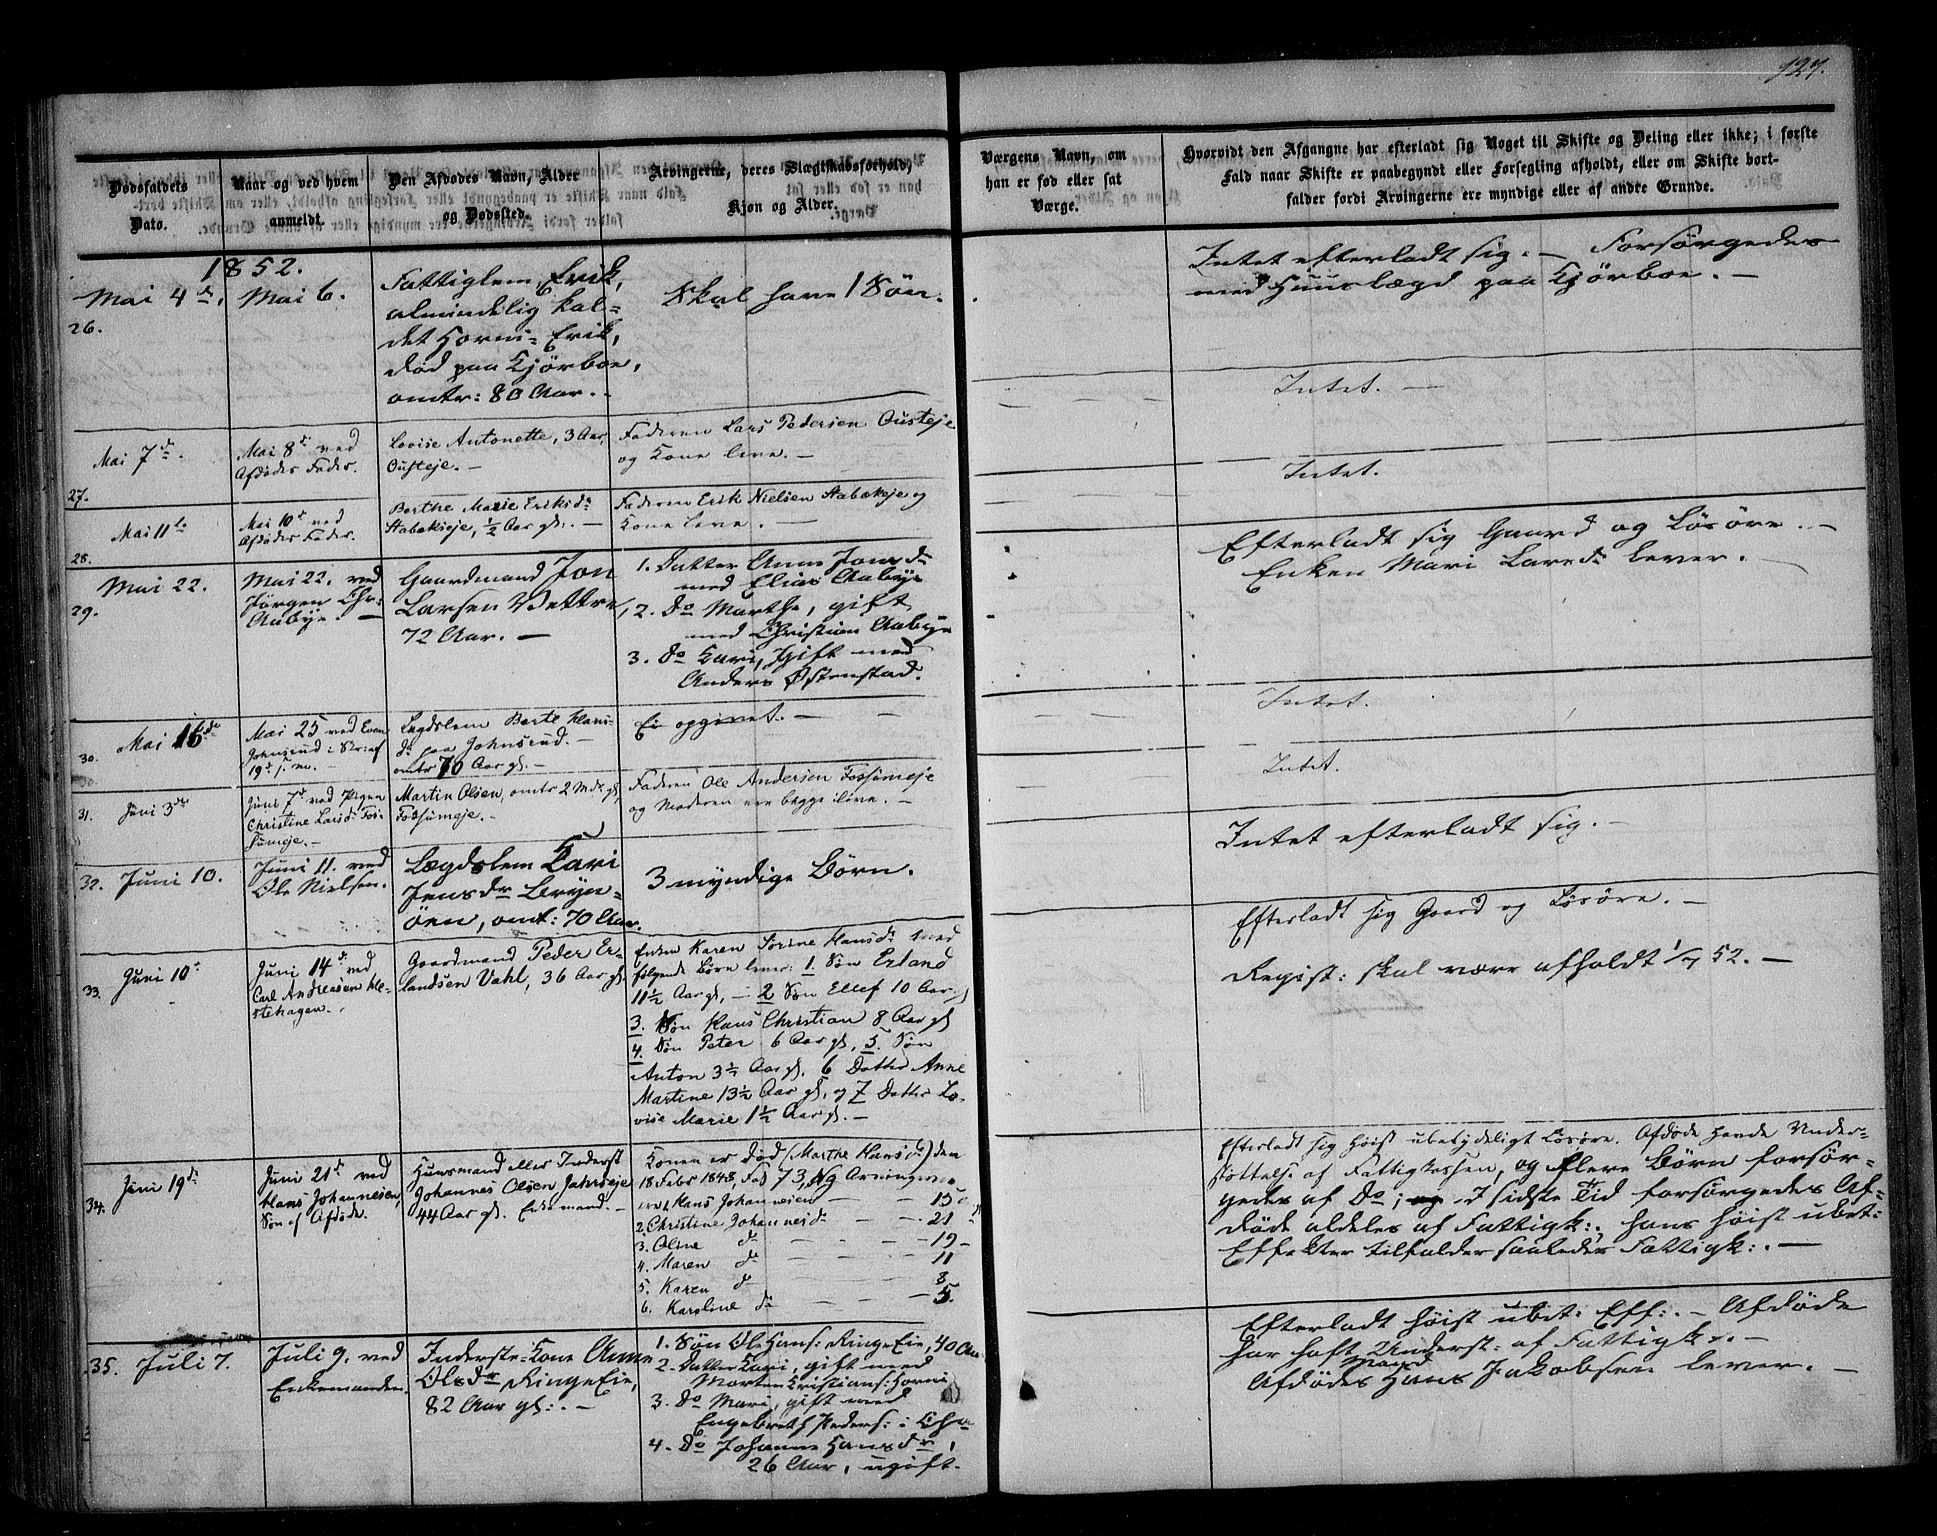 127.
Dødsfaldets
Dato.
Naar og ved hvem
anmeldt.
Den Afdødes Navn, Alder
og Dødssted.
Arvingerne, deres Slægtskabsforhold,
Kjøn og Alder.
Værgens Navn, om
han er fød eller sat
Værge.
Hvorvidt den Afgangne har efterladt sig Noget til Skifte og Deling eller ikke; i første
Fald naar Skifte er paabegyndt eller Forsegling afholdt, eller om Skifte bort-
falder fordi Arvingerne ere myndige eller af andre Grunde.
1852.
26.
Mai 4de,
Mai 6.
Fattiglem Erik,
almindelig kal=
det Horni=Erik,
død paa Kjørboe,
omtr: 80 Aar.-
Skal have 1 Søn.
Intet efterladt sig. - Forsørgedes
med Huuslægd paa Kjørboe. -
27.
Mai 7de.
Mai 8de ved
Afdødes Fader.
Lovise Antonette, 3 Aar,
Ousteje. -
Faderen Lars Pedersen Ousteje
og Kone leve. -
Intet. -
28.
Mai 11te
Mai 10de ved
Afdødes Fader.
Berthe Marie Eriksdr
Stabækeje, ½ Aar gl. -
Faderen Erik Nielsen Stabækeje og
Kone leve. -
Intet.
29.
Mai 22.
Mai 22. ved
Jørgen Chr:
Aabye. -
Gaardmand Jon
Larsen Vettre,
72 Aar. -
1. Datter Anne Jonsdr
med Elias Aabye
2. Do Marthe, gift
med Christian Aabye
3. Do Kari, gift med
Anders Østenstad.
Efterladt sig Gaard og Løsøre. -
Enken Mari Larsdr lever. -
30.
Mai 16de
Mai 25 ved Even
Johnsrud i Skr: af
19de s. m. -
Lægdslem Berte Hans-
dr paa Johnsrud. -
omtr 70 Aar gl. -
Ei opgivet. -
Intet.
31.
Juni 3de
Juni 7de ved Pigen
Christine Larsdr Fos-
sumeje. -
Martin Olsen, omtr 2 Mdr gl,
Fossumeje. -
Faderen Ole Andersen Fossumeje
og Moderen ere begge ilive. -
Intet.
32.
Juni 10.
Juni 11. ved
Ole Nielsen.
Lægdslem Kari
Jensdr Bryn=
øen, omt: 70 Aar.
3 myndige Børn.
Intet efterladt sig. -
33.
Juni 10de
Juni 14de ved
Carl Andreasen He-
stehagen.
Gaardmand Peder Er-
landsen Vahl, 36 Aar gl.
Enken Karen Sørine Hansdr med
følgende Børn lever: 1. Søn Erland
11½ Aar gl, - 2 Søn Ellef 10 Aar gl
3. Søn Hans Christian 8 Aar gl
4. Søn Peter 6 Aar gl, 5. Søn
Anton 3½ Aar gl. 6 Datter Anne
Martine 13½ Aar gl, og 7 Datter Lo-
vise Marie 1½ Aar gl. -
Efterladt sig Gaard og Løsøre. -
Regist: skal være afholdt 1/7 52. -
34.
Juni 19de
Juni 21de ved
Hans Johannesen,
Søn af Afdøde.
Huusmand eller Inderst
Johannes Olsen Jahrseje
44 Aar gl. Enkemand. -
Konen er død (Marthe Hansdr) den
18 Febr 1848, Arvingerne
Hans Johannesen - - 15
2. Christine Johannesdr - - 21
3. Oline dr - - - 19 -
4. Maren dr - - - 11
5. Karen dr - - - 8
6. Karoline dr - - - 5.
Efterladt sig høist ubetydeligt Løsøre. Afdøde havde Under-
støttelse af Fattigkassen, og flere Børn forsør-
gedes af Do; og i sidste Tid forsørgedes Af-
døde aldeles af Fattigk:, hans høist ubet:
Effekter tilfalder saaledes Fattigk:. -
35.
Juli 7.
Juli 9. ved
Enkemanden.
Inderste=Kone Anne
Olsdr RingeEie,
82 Aar gl:. -
1. Søn Ole Hans: RingeEie, 40 Aar
2. Datter Kari, gift med
Morten Kristians: Horni
3. Do Mari, gift med
Engebreth Peders: i Chr
4. Do Johanne Hansdr,
26 Aar, ugift.
Efterladt høist ubet: Eff:. - Afdøde
har haft Underst: af Fattigk:. -
Afdødes Mand Hans Jakobsen lever. -